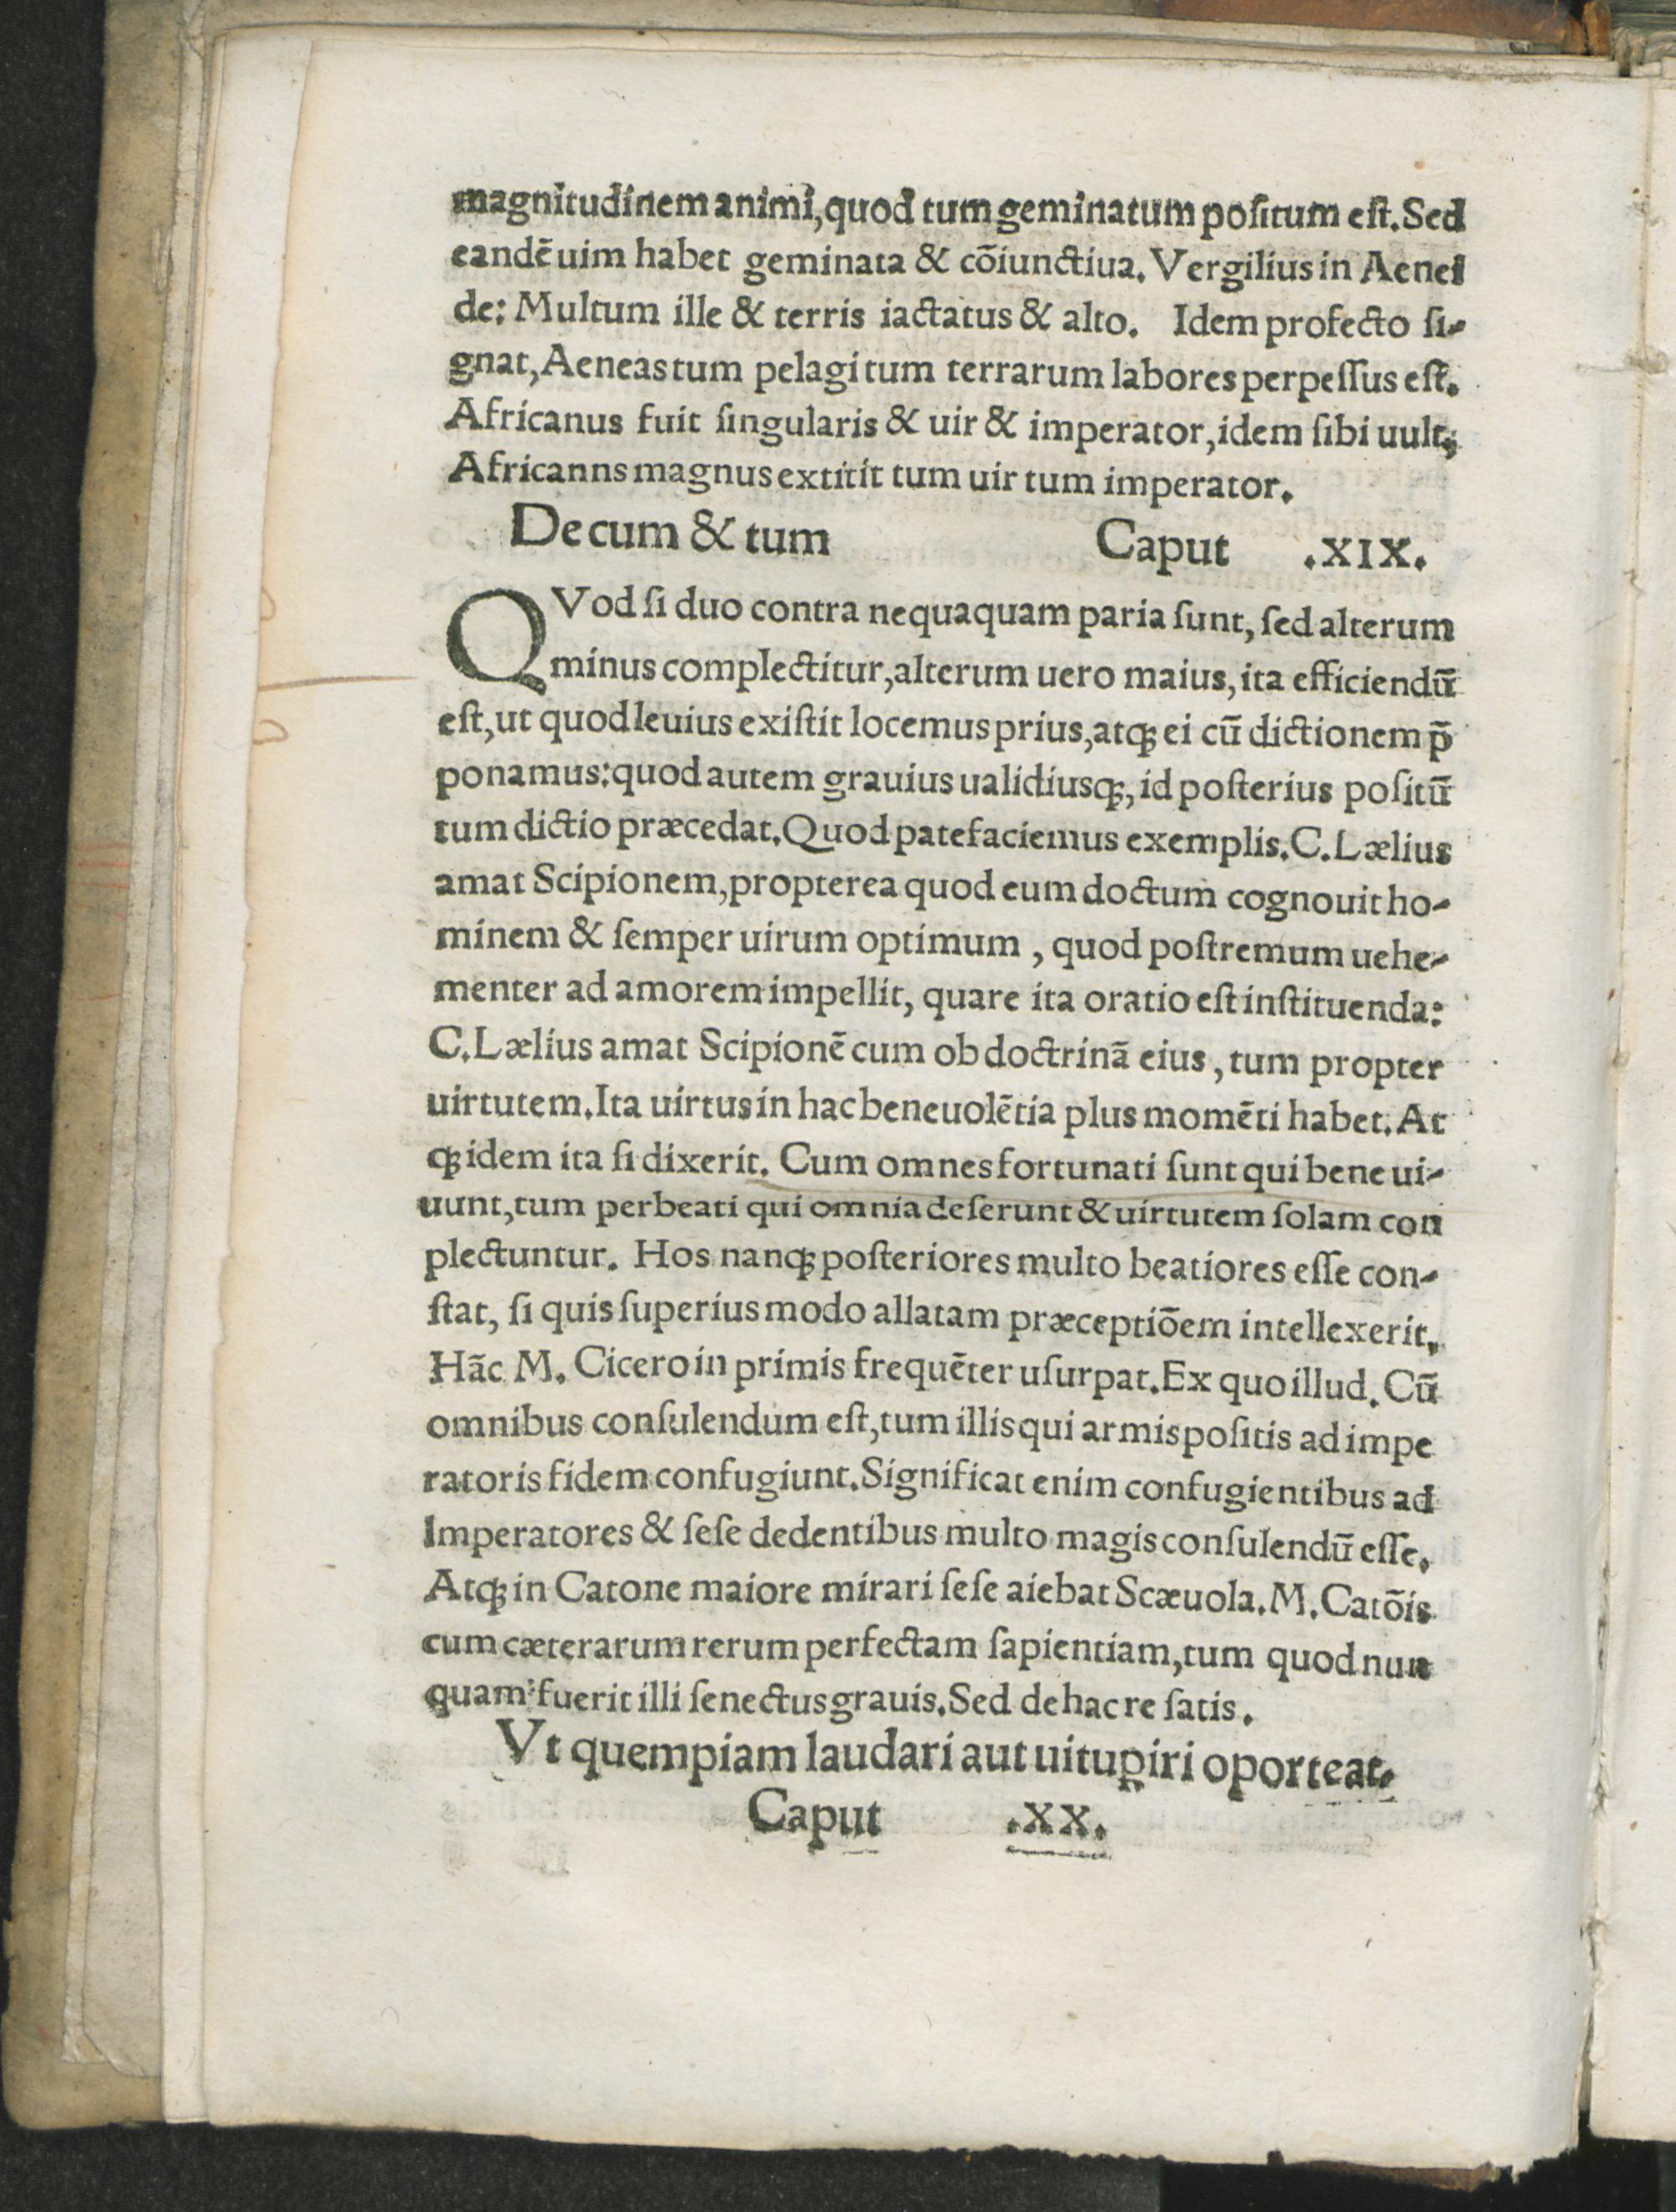 magnitudinem animi, quod tum geminatum poſitum eſt. Sed
eandē uim habet geminata & cōiunctiua. Vergilius in Aenei
de: Multum ille & terris iactatus & alto. Idem profecto ſi-
gnat, Aeneas tum pelagi tum terrarum labores perpeſſus eſt.
Africanus fuit ſingularis & uir & imperator, idem ſibi uult,
Africanns magnus extitit tum uir tum imperator.
De cum & tum Caput .XIX.
QVod ſi duo contra nequaquam paria ſunt, ſed alterum
minus complectitur, alterum uero maius, ita efficiendū
eſt, ut quod leuius exiſtit locemus prius, atqꝫ ei cū dictionem p̄
ponamus: quod autem grauius ualidiusqꝫ, id poſterius poſitū
tum dictio præcedat. Quod patefaciemus exemplis. C. Lælius
amat Scipionem, propterea quod eum doctum cognouit ho-
minem & ſemper uirum optimum, quod poſtremum uehe-
menter ad amorem impellit, quare ita oratio eſt inſtituenda:
C. Lælius amat Scipionē cum ob doctrinā eius, tum propter
uirtutem. Ita uirtus in hac beneuolētia plus momēti habet. At
qꝫ idem ita ſi dixerit. Cum omnes fortunati ſunt qui bene ui-
uunt, tum perbeati qui omnia deſerunt & uirtutem ſolam con
plectuntur. Hos nanqꝫ poſteriores multo beatiores eſſe con-
ſtat, ſi quis ſuperius modo allatam præceptiōem intellexerit.
Hāc M. Cicero in primis frequēter uſurpat. Ex quo illud. Cū
omnibus conſulendum eſt, tum illis qui armis poſitis ad impe
ratoris fidem confugiunt. Significat enim confugientibus ad
Imperatores & ſeſe dedentibus multo magis conſulendū eſſe.
Atqꝫ in Catone maiore mirari ſeſe aiebat Scæuola. M. Catōis
cum cæterarum rerum perfectam ſapientiam, tum quod nun
quam fuerit illi ſenectus grauis. Sed de hac re ſatis.
Vt quempiam laudari aut uituꝑiri oporteat.
Caput .XX.